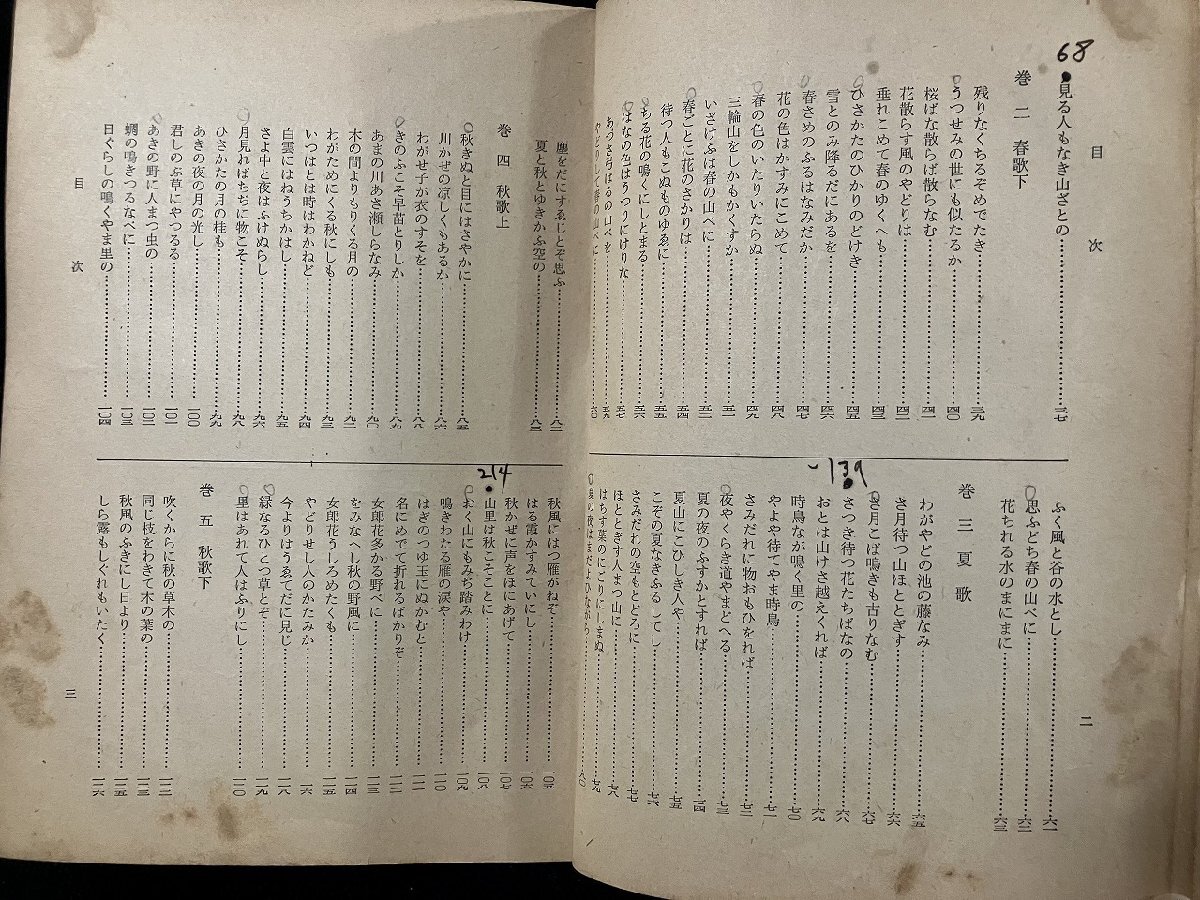 目次
68
見る人もなき山ざとの…………三七
巻二 春歌下
残りなくちるぞめでたき…………三九
うつせみの世にも似たるか…………四〇
桜ばな散らば散らなむ…………四一
花散らす風のやどりは…………四二
垂れこめて春のゆくへも…………四三
ひさかたのひかりのどけき…………四五
雪とのみ降るだにあるを…………四六
春さめのふるはなみだか…………四七
花の色はかすみにこめて…………四八
春の色のいたりいたらぬ…………四九
三輪山をしかもかくすか…………五一
いざけふは春の山べに…………五二
春ごとに花のさかりは…………五四
待つ人もこぬものゆゑに…………五五
ちる花の鳴くにしとまる…………五六
はなの色はうつりにけりな…………五七
あづさ弓はるの山べを…………五八
やどりして春の山べに…………六〇
ふく風と谷の水とし…………六一
思ふどち春の山べに…………六二
花ちれる水のまにまに…………六三
139
巻三 夏歌
わがやどの池の藤なみ…………六五
さ月待つ山ほととぎす…………六六
さ月こば鳴きも古りなむ…………六七
さつき待つ花たちばなの…………六八
おとは山けさ越えくれば…………六九
時鳥なが鳴く里の…………七〇
やよや待てやま時鳥…………七一
さみだれに物おもひをれば…………七二
夜やくらき道やまどへる…………七三
夏の夜のふすかとすれば…………七四
夏山にこひしき人や…………七五
こぞの夏なきふるしてし…………七六
さみだれの空もとどろに…………七七
ほととぎす人まつ山に…………七八
はちす葉のにごりにしまぬ…………七九
夏の夜はまだよひながら…………八〇
二
塵をだにすゑじとぞ思ふ…………八二
夏と秋とゆきかふ空の…………八三
巻四 秋歌上
秋きぬと目にはさやかに…………八五
川かぜの涼しくもあるか…………八六
わがせ子が衣のすそを…………八八
きのふこそ早苗とりしか…………八九
あまの川あさ瀬しらなみ…………九〇
木の間よりもりくる月の…………九二
わがためにくる秋にしも…………九三
いつはとは時はわかねど…………九四
白雲にはねうちかはし…………九五
さよ中と夜はふけぬらし…………九六
月見ればちぢに物こそ…………九八
ひさかたの月の桂も…………九九
あきの夜の月の光し…………一〇〇
君しのぶ草にやつるる…………一〇一
あきの野に人まつ虫の…………一〇二
蜩の鳴きつるなべに…………一〇三
日ぐらしの鳴くやま里の…………一〇四
目次
214
秋風にはつ雁がねぞ…………一〇五
はる霞かすみていにし…………一〇六
秋かぜに声をほにあげて…………一〇七
山里は秋こそことに…………一〇八
おく山にもみぢ踏みわけ…………一〇九
鳴きわたる雁の涙や…………一一〇
はぎのつゆ玉にぬかむと…………一一一
名にめでて折れるばかりぞ…………一一二
女郎花多かる野べに…………一一三
をみなへし秋の野風に…………一一四
女郎花うしろめたくも…………一一五
やどりせし人のかたみか…………一一六
今よりはうゑてだに見じ…………一一八
緑なるひとつ草とぞ…………一一九
里はあれて人はふりにし…………一二〇
巻五 秋歌下
吹くからに秋の草木の…………一二二
同じ枝をわきて木の葉の…………一二三
秋風のふきにし日より…………一二五
しら露もしぐれもいたく…………一二六
三